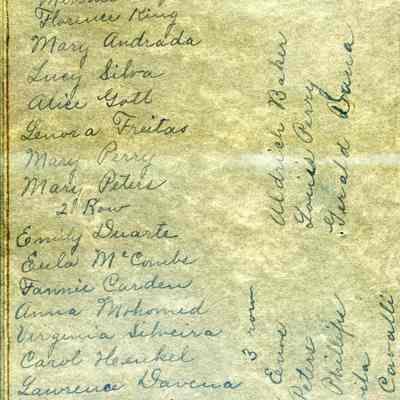 Florence King
Mary Andrada
Lucy Silva
Alice Gott
Lenora Freitas
Mary Perry
Mary Peters
2 Row
Emily Duarte
Eula McCombe
Fannie Carden
Anna Mohomid
Virginia Silveira
Carol Henkel
Lawrence Davena
3 row
Aldrich Baker
Louis Perry
Gerald
Enos
Peters
Phillips
Cavalli